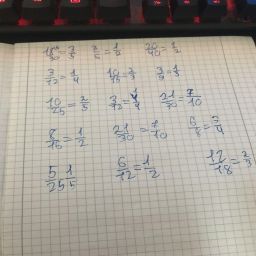 18/30 = 3/5 2/4 = 1/2 20/40 = 1/2
3/12 = 1/4 10/15 = 2/3 3/9 = 1/3
10/25 = 2/5 3/12 = 1/4 21/30 = 7/10
8/16 = 1/2 21/30 = 7/10 6/8 = 3/4
5/25 1/5 6/12 = 1/2 12/18 = 2/3